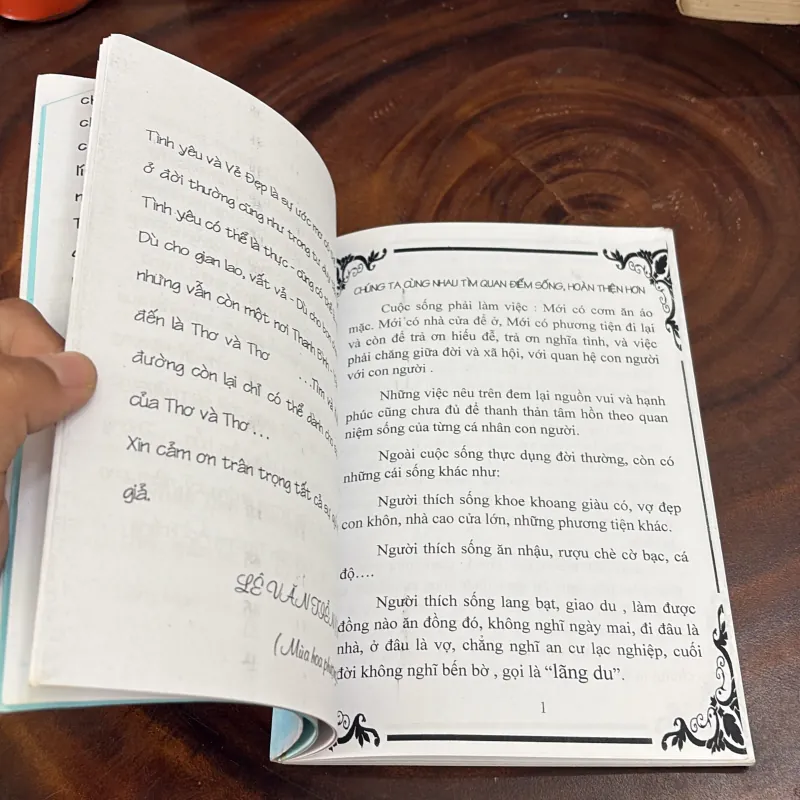 Tình yêu và Vẻ Đẹp là sự ước mơ
ở đời thường cũng như trong tư duy
Tình yêu có thể là thực - cũng có thể
Dù cho gian lao, vất vả - Dù cho
nhưng vẫn còn một nơi Thanh Bình -
đến là Thơ và Thơ ...Tìm và
đường còn lại chỉ có thể dành cho
của Thơ và Thơ ...
Xin cảm ơn trân trọng tất cả sự
giả.
LÊ VĂN
(Mùa hoa
CHÚNG TA CÙNG NHAU TÌM QUAN ĐIỂM SỐNG, HOÀN THIỆN HƠN
Cuộc sống phải làm việc : Mới có cơm ăn áo
mặc. Mới có nhà cửa để ở, Mới có phương tiện đi lại
và còn để trả ơn hiếu đễ, trả ơn nghĩa tình, và việc
phải chăng giữa đời và xã hội, với quan hệ con người
với con người .
Những việc nêu trên đem lại nguồn vui và hạnh
phúc cũng chưa đủ để thanh thản tâm hồn theo quan
niệm sống của từng cá nhân con người.
Ngoài cuộc sống thực dụng đời thường, còn có
những cái sống khác như:
Người thích sống khoe khoang giàu có, vợ đẹp
con khôn, nhà cao cửa lớn, những phương tiện khác.
Người thích sống ăn nhậu, rượu chè cờ bạc, cá
độ….
Người thích sống lang bạt, giao du , làm được
đồng nào ăn đồng đó, không nghĩ ngày mai, đi đâu là
nhà, ở đâu là vợ, chẳng nghĩ an cư lạc nghiệp, cuối
đời không nghĩ bến bờ , gọi là “lãng du”.
1